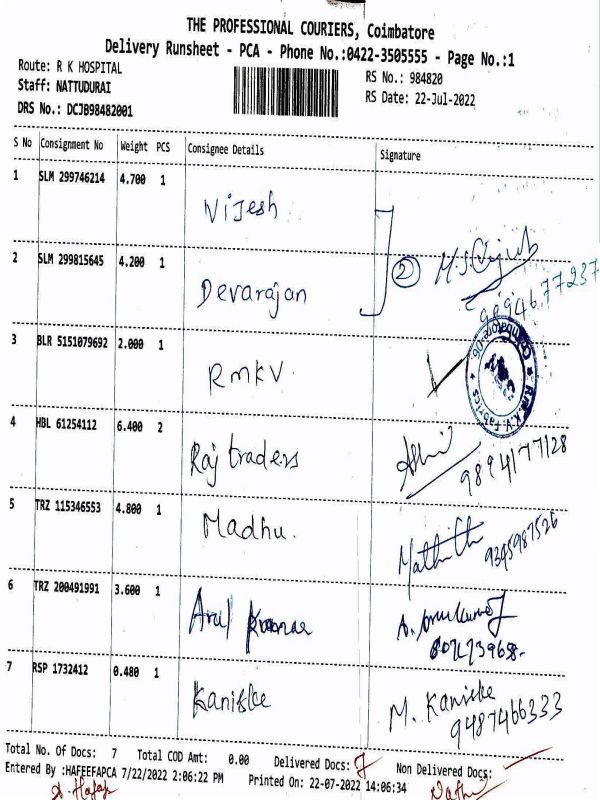 THE PROFESSIONAL COURIERS, Coimbatore
Delivery Runsheet - PCA - Phone No.:0422-3505555 - Page No.:1
Route: R K HOSPITAL RS No.: 984820
Staff: NATTUDURAI RS Date: 22-Jul-2022
DRS No.: DCJB98482001
S No Consignment No Weight PCS Consignee Details Signature
1 SLM 299746214 4.700 1 Vijesh
2 SLM 299815645 4.200 1 Devarajan 2
3 BLR 5151079692 2.000 1 RMKV
4 HBL 61254112 6.400 2 Raj traders
9894177128
5 TRZ 115346553 4.800 1 Madhu. 9345987526
6 TRZ 200491991 3.600 1 Arul
7 RSP 1732412 0.480 1 Kaniske M. Kaniske
9487466333
Total No. Of Docs: 7 Total COD Amt: 0.00 Delivered Docs: 7 Non Delivered Docs:
Entered By :HAFEEFAPCA 7/22/2022 2:06:22 PM Printed On: 22-07-2022 14:06:34